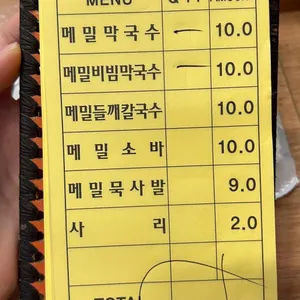 MENU Q'TY AMOUNT
메밀막국수 一 10.0
메밀비빔막국수 一 10.0
메밀들깨칼국수 10.0
메밀소바 10.0
메밀묵사발 9.0
사리 2.0
TOTAL